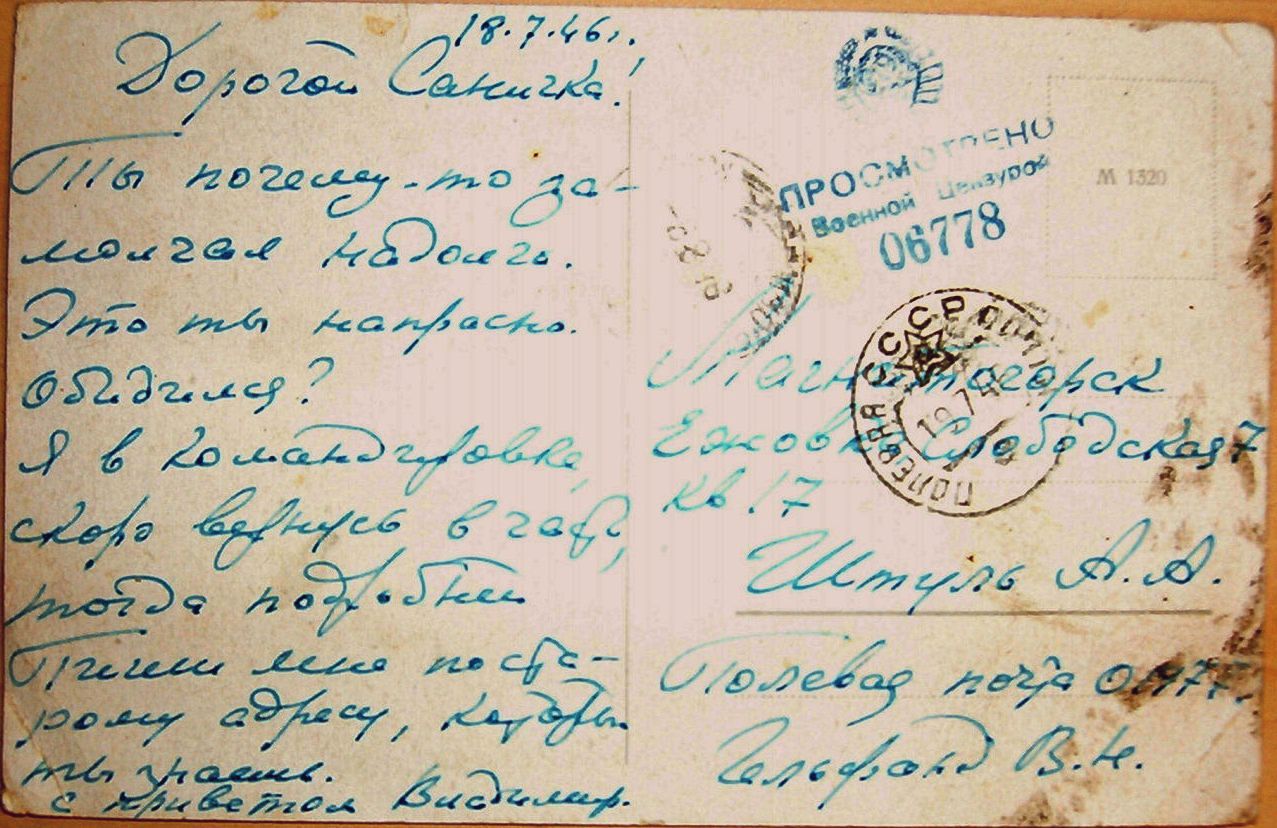 18.7.46 г.,
Дорогой Саничка!
Ты почему-то за-
молчал надолго.
Это ты напрасно.
Обидился?
Я в командировке,
скоро вернусь в часть,
тогда подробнее
Пиши мне по ста-
рому адресу, который
ты знаешь.
с приветом Владимир.
ПРОСМОТРЕНО
Военной Цензурой
06778
М 1320
СССР
ПОЛЕВАЯ ПОЧТА
19.7.4
Магнитогорск
Ежовка Слободская 7
кв 17
Штуль А.А.
Полевая почта
Гельфанд В.Н.